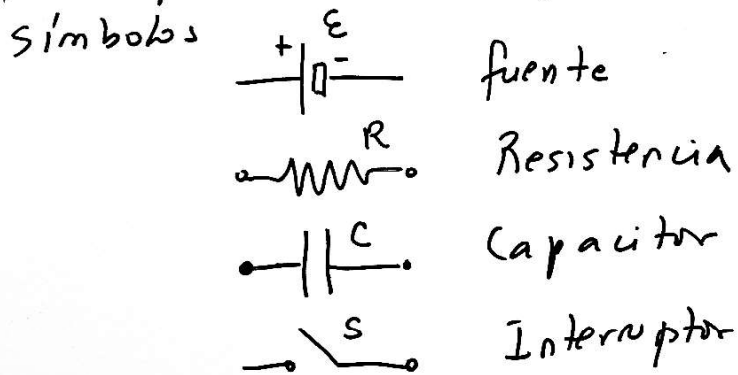 símbolos
+ ε -
fuente
R
Resistencia
C
Capacitor
S
Interruptor